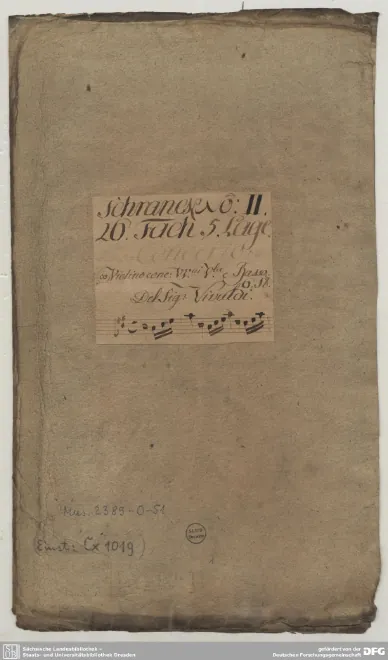 Schranck No: II.
20. Fach 5. Lage.
Concerto
co Violino conc: VVni Vla e Basso
Del Sigr Vivaldi.
Mus. 2389-O-51
Cx 1019)
Sächsische Landesbibliothek –
Staats- und Universitätsbibliothek Dresden
gefördert von der
Deutschen Forschungsgemeinschaft
DFG